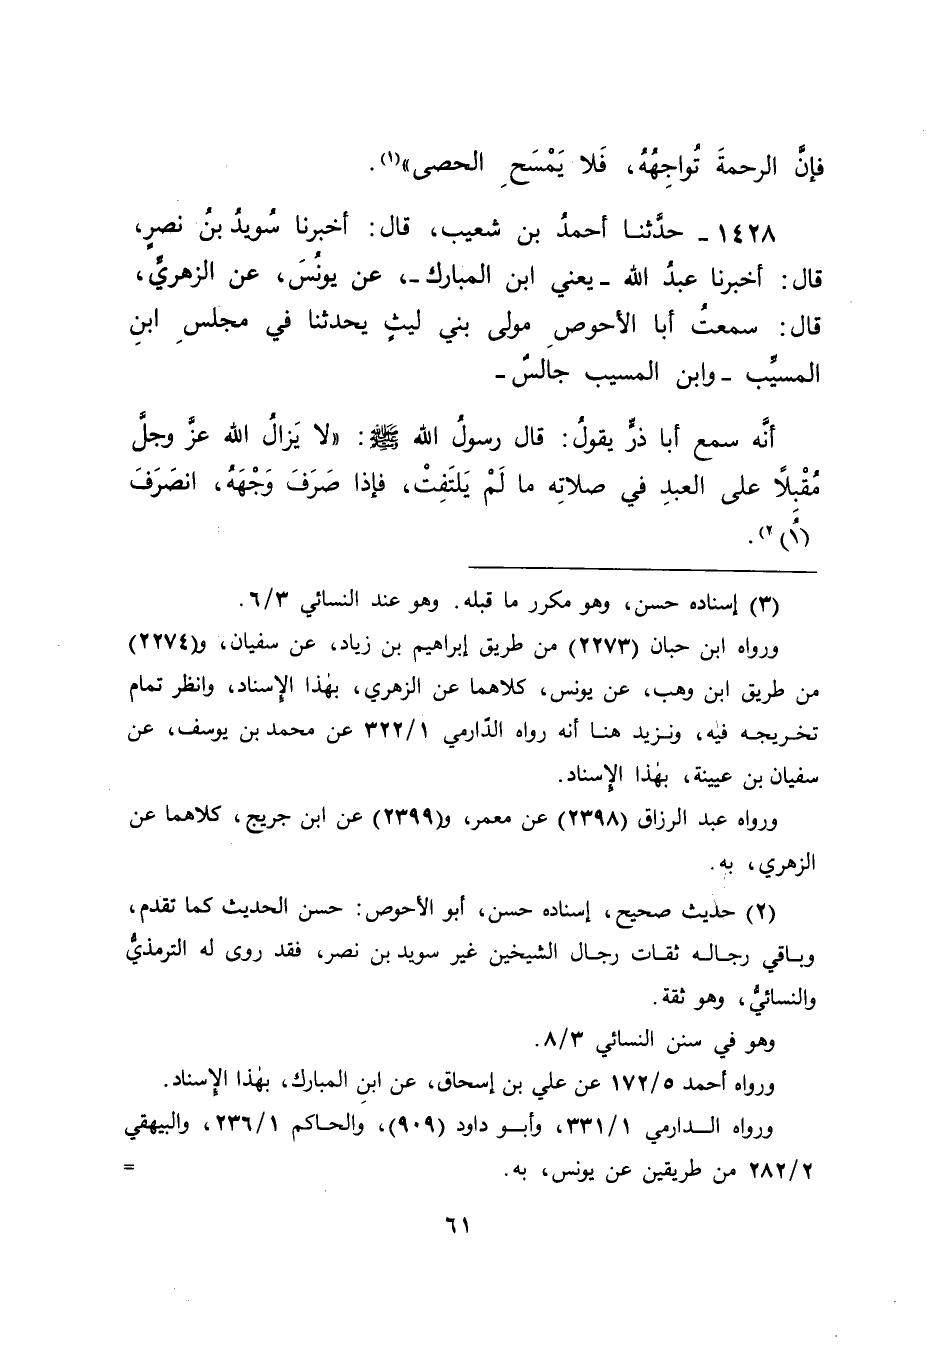 فإنَّ الرحمةَ تُواجِهُهُ، فَلا يَمْسَحِ الحصى»(١).
١٤٢٨ ـ حدَّثنا أحمدُ بن شعيب، قال: أخبرنا سُويدُ بنُ نصرٍ،
قال: أخبرنا عبدُ الله ـ يعني ابن المبارك ـ، عن يونُسَ، عن الزهريِّ،
قال: سمعتُ أبا الأحوصِ مولى بني ليثٍ يحدثنا في مجلسِ ابنِ
المسيِّب ـ وابن المسيب جالسٌ ـ
أنَّه سمع أبا ذرٍّ يقولُ: قال رسولُ الله ﷺ: «لا يَزالُ الله عزَّ وجلَّ
مُقْبِلًا على العبدِ في صلاتِه ما لَمْ يَلتَفِتْ، فإذا صَرَفَ وَجْهَهُ، انصَرَفَ
(١) ٢).
(٣) إسناده حسن، وهو مكرر ما قبله. وهو عند النسائي ٦/٣.
ورواه ابن حبان (٢٢٧٣) من طريق إبراهيم بن زياد، عن سفيان، و(٢٢٧٤)
من طريق ابن وهب، عن يونس، كلاهما عن الزهري، بهٰذا الإسناد، وانظر تمام
تخريجه فيه، ونزيد هنا أنه رواه الدّارمي ٣٢٢/١ عن محمد بن يوسف، عن
سفيان بن عيينة، بهٰذا الإسناد.
ورواه عبد الرزاق (٢٣٩٨) عن معمر، و(٢٣٩٩) عن ابن جريج، كلاهما عن
الزهري، به.
(٢) حديث صحيح، إسناده حسن، أبو الأحوص: حسن الحديث كما تقدم،
وباقي رجاله ثقات رجال الشيخين غير سويد بن نصر، فقد روى له الترمذيُّ
والنسائيُّ، وهو ثقة.
وهو في سنن النسائي ٨/٣.
ورواه أحمد ١٧٢/٥ عن علي بن إسحاق، عن ابنِ المبارك، بهٰذا الإسناد.
ورواه الدارمي ٣٣١/١، وأبو داود (٩٠٩)، والحاكم ٢٣٦/١، والبيهقي
٢٨٢/٢ من طريقين عن يونس، به. =
٦١